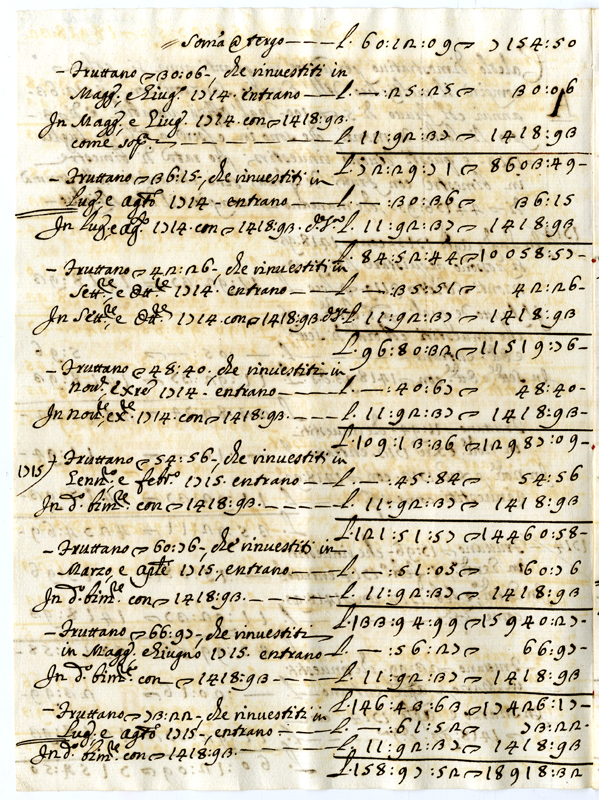 Somã @ tergo — L. 60:12:09 7154:50
- Fruttano 30:06-, che rinvestiti in
Magg.º, e Giug.º 1714. entrano — L. — :25:25 30:06
In Magg.º, e Giug.º 1714. con 1418:93.
come sop.ª — L. 11:92:37 1418:93
L. 72:29:71 8603:49-
- Fruttano 36:15-, che rinvestiti in
Lug.º, e agto 1714 - entrano — L. — :30:36 36:15
In Lug.º, e ag.º 1714. con 1418:93. L. 11:92:37 1418:93
L. 84:52:44 10058:57-
- Fruttano 42:26-, che rinvestiti in
Sett.re, e Ott.re 1714. entrano — L. — :35:51 42:26-
In Sett.re, e Ott.re 1714. con 1418:93 L. 11:92:37 1418:93
L. 96:80:32 11519:76-
- Fruttano 48:40-, che rinvestiti in
nov.re, e Xre 1714- entrano — L. — :40:67 48:40-
In nov.re, e Xre 1714. con 1418:93. — L. 11:92:37 1418:93-
L. 109:13:36 12987:09-
1715 + Fruttano 54:56-, che rinvestiti in
Genn.º, e febr.º 1715. entrano — L. — :45:84 54:56
In d.º bim.re con 1418:93. — L. 11:92:37 1418:93
L. 121:51:57 14460:58-
- Fruttano 60:76-, che rinvestiti in
Marzo, e aprile 1715, entrano — L. — :51:05 60:76
In d.º bim.re con 1418:93. — L. 11:92:37 1418:93
L. 133:94:99 15940:27-
- Fruttano 66:97-, che rinvestiti
in Magg.º, e Giugno 1715. entrano L. — :56:27 66:97-
In d.º bim.re con — 1418:93. — L. 11:92:37 1418:93
L. 146:43:63 17426:17-
- Fruttano 73:22-, che rinvestiti in
Lug.º, e agto 1715- entrano — L. — :61:52 73:22-
In d.º bim.re con 1418:93. — L. 11:92:37 1418:93
L. 158:97:52 18918:32